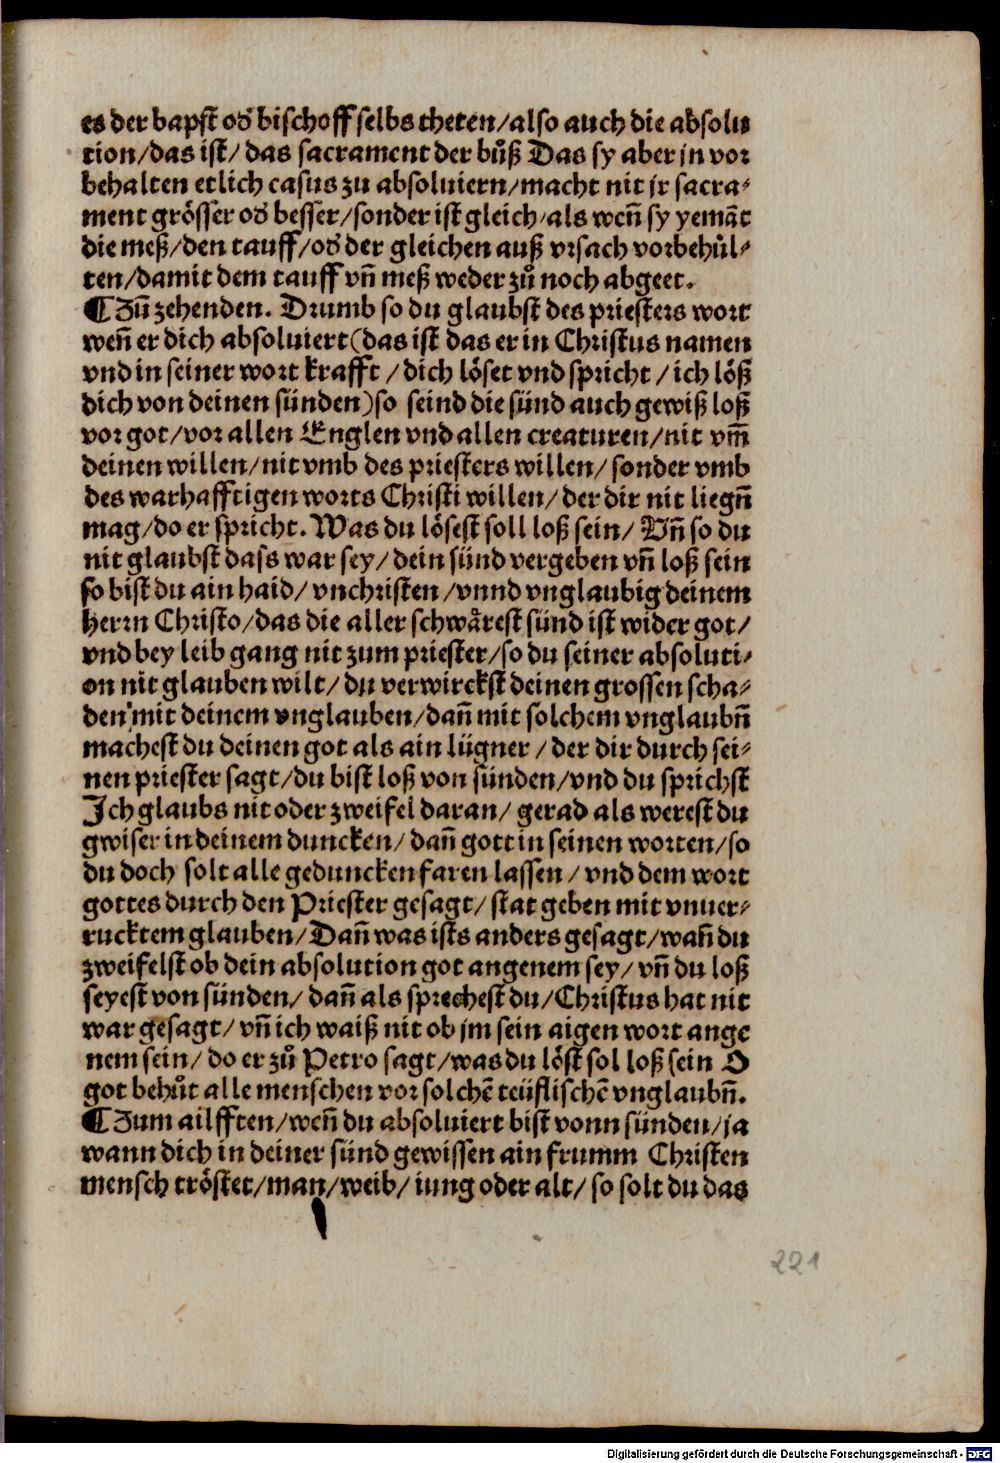 es der bapst od̕ bischoff selbs theten/also auch die absolu
tion/das ist/ das sacrament der bůß Das sy aber jn vor
behalten etlich casus zu absoluiern/macht nit jr sacra⸗
ment grösser od̕ besser/sonder ist gleich/als weñ sy yemãt
die meß/den tauff/od̕ der gleichen auß vrsach vorbehůl⸗
ten/damit dem tauff vñ meß weder zů noch abgeet.
¶Zũ zehenden. Drumb so du glaubst des priesters wort
weñ er dich absoluiert(das ist das er in Christus namen
vnd in seiner wort krafft /dich löset vnd spricht /ich löß
dich von deinen sünden)so seind die sünd auch gewiß loß
vor got/vor allen Englen vnd allen creaturen/nit vm̃
deinen willen/nit vmb des priesters willen/sonder vmb
des warhafftigen worts Christi willen/der dir nit liegñ
mag/do er spricht. Was du lösest soll loß sein/ Vñ so du
nit glaubst dass war sey/dein sünd vergeben vñ loß sein
so bist du ain haid/vnchristen/vnnd vnglaubig deinem
herrn Christo/das die aller schwårest sünd ist wider got/
vnd bey leib gang nit zum priester/so du seiner absoluti⸗
on nit glauben wilt/du verwirckst deinen grossen scha⸗
den mit deinem vnglauben/dañ mit solchem vnglaubñ
machest du deinen got als ain lügner/der dir durch sei⸗
nen priester sagt/du bist loß von sünden/vnd du sprichst
Ich glaubs nit oder zweifel daran/ gerad als werest du
gwiser in deinem duncken/dañ gott in seinen worten/so
du doch solt alle geduncken faren lassen/vnd dem wort
gottes durch den Priester gesagt/stat geben mit vnuer⸗
rucktem glauben/Dañ was ists anders gesagt/wañ du
zweifelst ob dein absolution got angenem sey/vñ du loß
seyest von sünden/dañ als sprechest du/Christus hat nit
war gesagt/vñ ich waiß nit ob jm sein aigen wort ange
nem sein/do er zů Petro sagt/was du löst sol loß sein O
got behůt alle menschen vor solchẽ teüflischẽ vnglaubñ.
¶Zum ailfften/weñ du absoluiert bist vonn sünden/ja
wann dich in deiner sünd gewissen ain frumm Christen
mensch tröstet/man/weib/iung oder alt/so solt du das
221
Digitalisierung gefördert durch die Deutsche Forschungsgemeinschaft - DFG